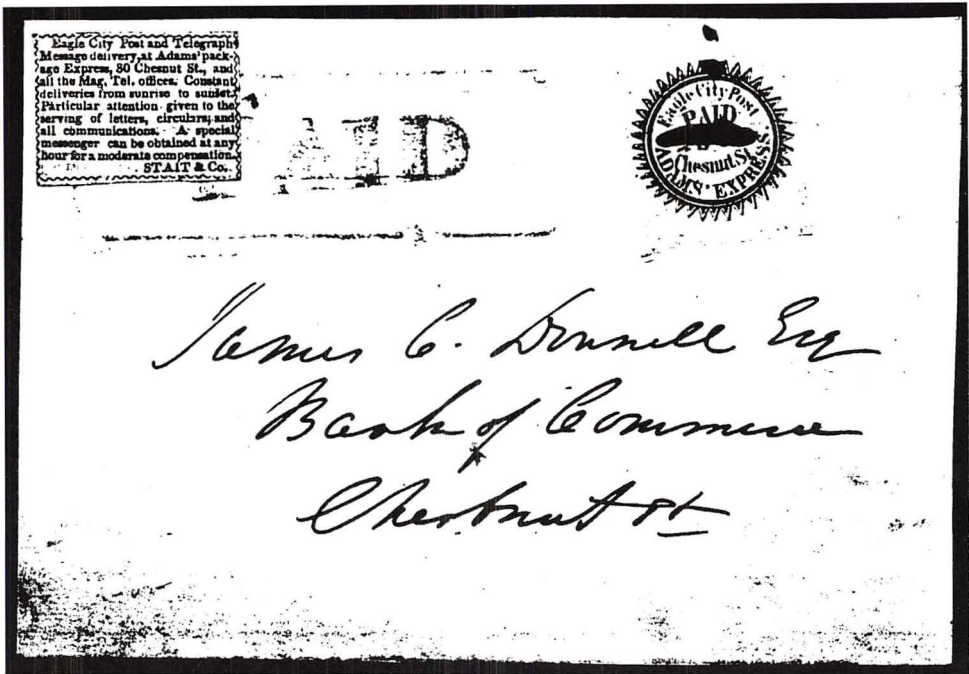 Eagle City Post and Telegraph
Message delivery, at Adams' pack-
age Express, 80 Chesnut St., and
all the Mag. Tel. offices. Constant
deliveries from sunrise to sunset.
Particular attention given to the
serving of letters, circulars, and
all communications. A special
messenger can be obtained at any
hour for a moderate compensation.
STAIT & Co.
PAID
Eagle City Post
PAID
Chesnut St
ADAMS' EXPRESS.
James C. Donnell Esq
Bank of Commerce
Chestnut St